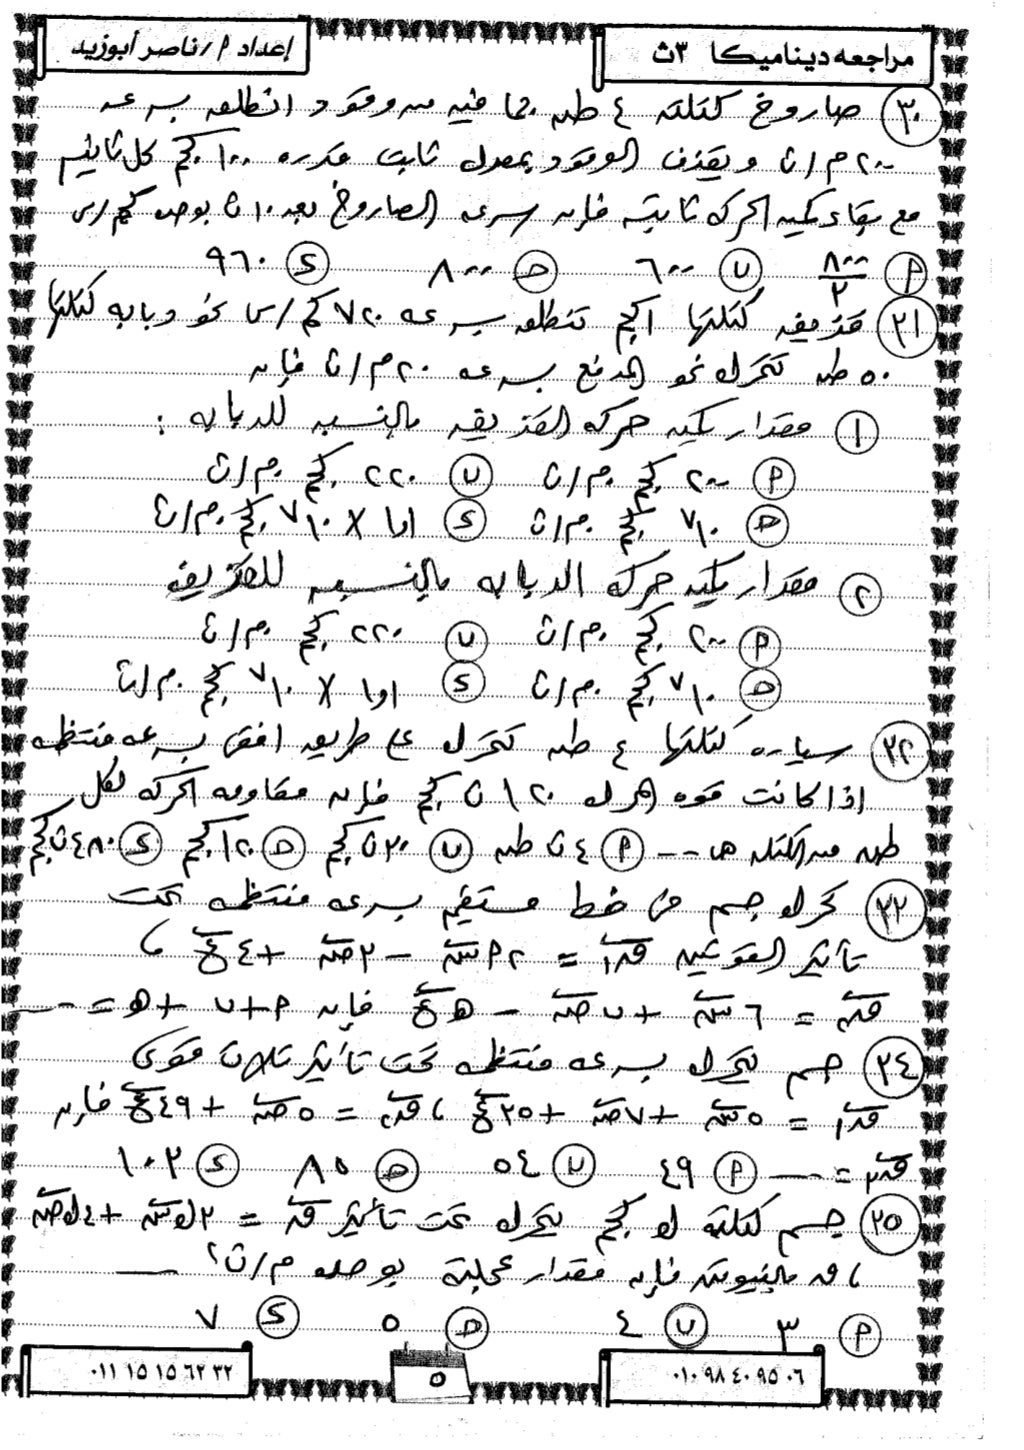 إعداد م/ناصر أبوزيد
مراجعه ديناميكا ٣ث
٣٠ صاروخ كتلته ٤ طن بما فيه من وقود انطلق بسرعه
٢٠٠ م/ث ويقذف الوقود بمعدل ثابت قدره ١٠٠ كجم كل ثانيه
مع بقاء كميه الحركه ثابته فإن سرعه الصاروخ بعد ١٠ ث بوحده كم/س
٩ ٨٠٠/٣ ب ٦٠٠ ح ٨٠٠ د ٩٦٠
٣١ قذيفه كتلتها ١ كجم تنطلق بسرعه ٧٢٠ كم/س نحو دبابه كتلتها
٥٠ طن تتحرك نحو المدفع بسرعه ٢٠ م/ث فإن
١ مقدار كميه حركه القذيفه بالنسبه للدبابه :
٩ ٢٠٠ كجم .م/ث ب ٢٢٠ كجم .م/ث
ح ١٠^٧ كجم .م/ث د ١,١ × ١٠^٧ كجم .م/ث
٢ مقدار كميه حركه الدبابه بالنسبه للقذيفه
٩ ٢٠٠ كجم .م/ث ب ٢٢٠ كجم .م/ث
ح ١٠^٧ كجم .م/ث د ١,١ × ١٠^٧ كجم .م/ث
٣٢ سياره كتلتها ٤ طن تتحرك على طريق افقى بسرعه منتظمه
اذا كانت قوه المحرك ١٢٠ ث كجم فإن مقاومه الحركه لكل
طن من الكتله هى --- ٩ ٤ ث طن ب ٣٠ ث كجم ح ١٢٠ كجم د ٤٨٠ ث كجم
٣٣ تحرك جسم فى خط مستقيم بسرعه منتظمه تحت
تأثير القوتين ق١ = ٢ ٩ س - ٣ ص + ٤ ع ،
ق٢ = ٦ س + ب ص - ح ع فإن ٩ + ب + ح = ---
٣٤ جسم يتحرك بسرعه منتظمه تحت تأثير ثلاث قوى
ق١ = ٥ س + ٧ ص + ٢٥ ع ، ق٢ = ٥ ص + ٤٩ ع فإن
ق٣ = --- ٩ ٤٩ ب ٥٤ ح ٨٥ د ١٠٣
٣٥ جسم كتلته ك كجم يتحرك تحت تأثير ق = ٣ ك س + ٤ ك ص
، ق بالنيوتن فإن مقدار عجلته بوحده م/ث٢ ---
٩ ٣ ب ٤ ح ٥ د ٧
٠١١ ١٥ ١٥ ٦٢ ٣٢
٥
٠١٠ ٩٨ ٤٠ ٩٥ ٠٦